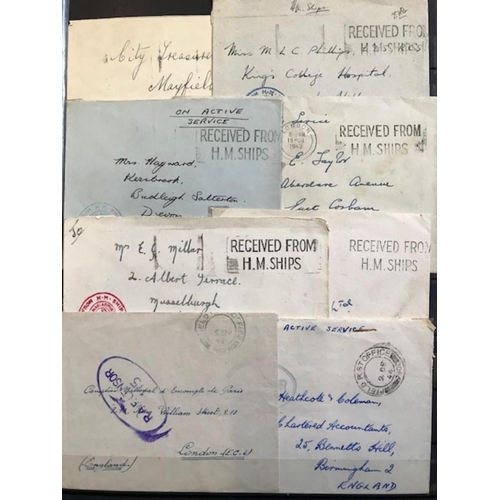 City Treasurer
Mayfield
H.M. Ships
RECEIVED FROM
H.M. SHIPS
Miss M L C Phillips
King's College Hospital
ON ACTIVE
SERVICE
RECEIVED FROM
H.M. SHIPS
Mrs Hayward
Kersbrook
Budleigh Salterton
Devon
RECEIVED FROM
H.M. SHIPS
E. Taylor
Aberdare Avenue
East Cosham
Mr E. J. Millar
2. Albert Terrace,
Musselburgh
RECEIVED FROM
H.M. SHIPS
RECEIVED FROM
H.M. SHIPS
Ltd.
R.A.F. CENSOR
William Street,
London E.C.4
ACTIVE SERVICE
FIELD POST OFFICE
Heathcote & Coleman,
Chartered Accountants,
25, Bennetts Hill,
Birmingham 2
ENGLAND